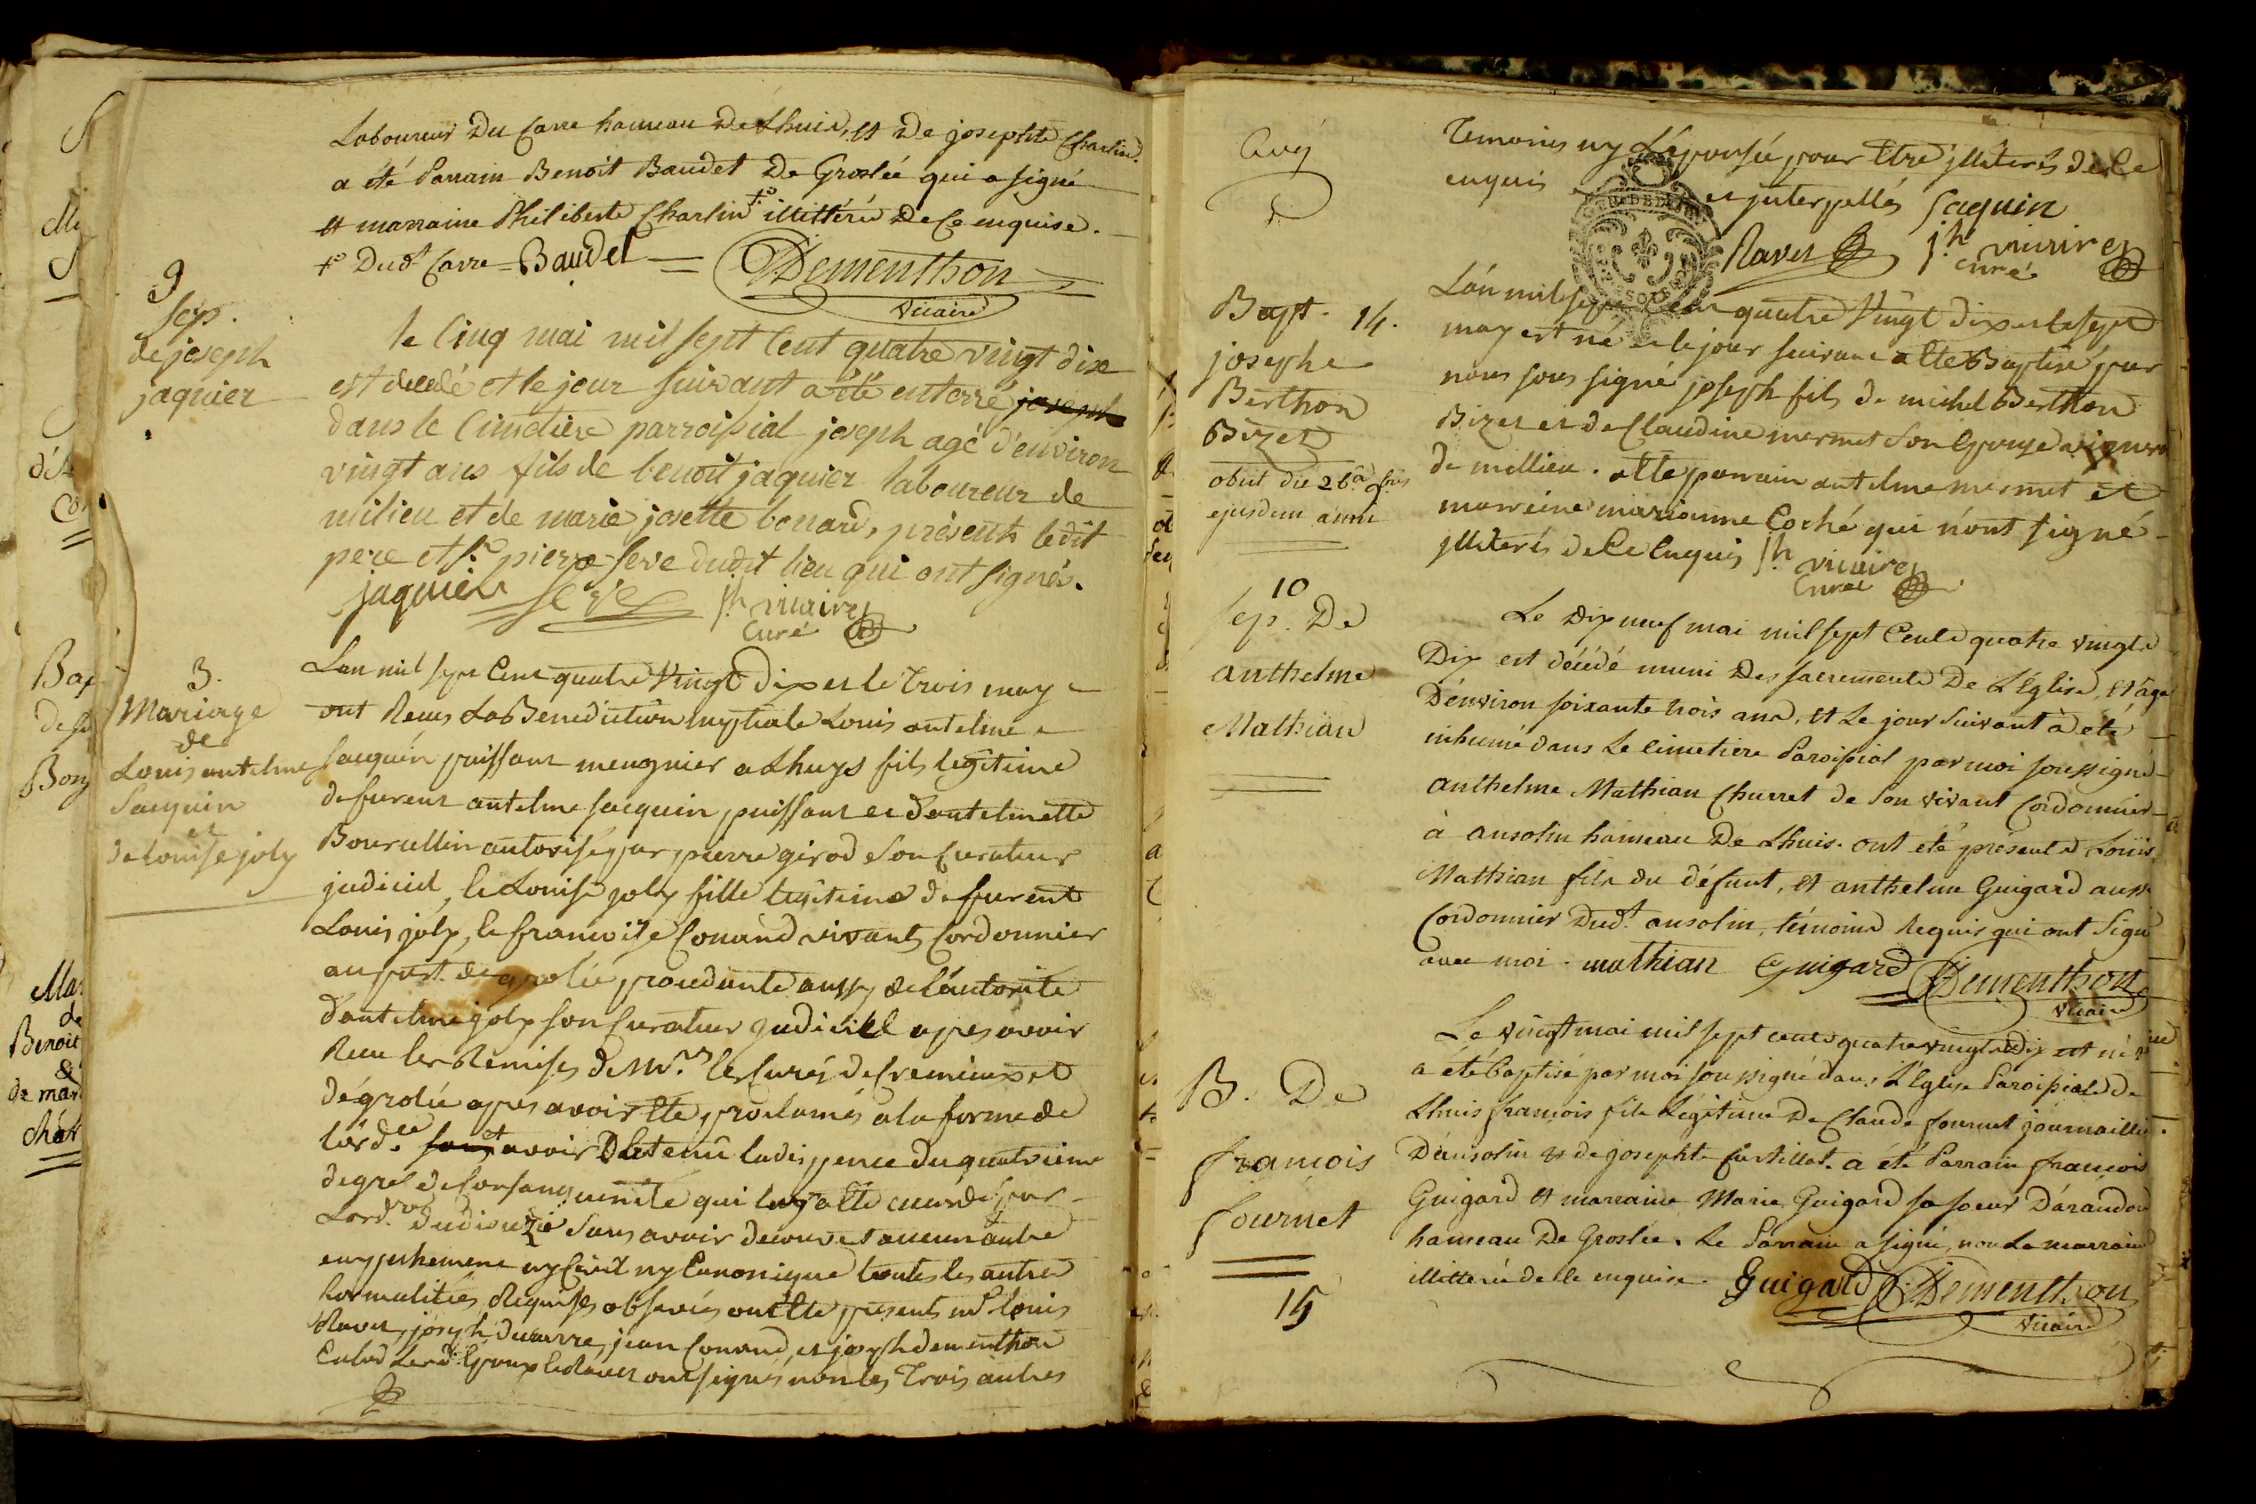 Laboureur Du Carre hameau De Lhuis, et De josephte Charlin.
a été Parrain Benoit Baudet De Groslée qui a signé
et marraine Philiberte Charlin +° illittérée De Ce enquise.
+° Dud.t Carre = Baudet = Dementhon
vicaire
9
Sep.
de joseph
jaquier
le Cinq mai mil sept Cent quatre vingt dix
est decedé et le jour suivant a été enterré joseph
dans le Cimetière parroissial joseph agé d'environ
vingt ans fils de benoit jaquier laboureur de
milieu et de marie josette bonard, présents ledit
pere et Sr. pierre seve dudit lieu qui ont signés.
jaquier Seve j.h
Curé
3.
Mariage
de
Louis antelme
Saequin
et
de Louise joly
Lan mil sept Cent quatre Vingt Dix et le Trois may
ont Reçus La Benediction nuptiale Louis antelme
Saequin puissant meugnier a Lhuys fils legitime
de furent antelme saequin puissant et d'antelmette
Bourullin autorisé par pierre girod son Curateur
judiciel, et Louise joly fille legitime de furent
Louis joly, et francoise Conand vivants Cordonnier
au port de grolée procedante aussy de l'autorité
d'antelme joly son Curateur judiciel apres avoir
Reçu les Remises de Mrs. les Curés de Cremieux et
de grolée apres avoir été proclamés a la forme de
l'ord.ce sans et avoir obtenû la dispence du quatrieme
degré de Consanguinité qui leur a été accordé par
Lord.re du dioceze sans avoir decouvert aucun autre
empechement ny Civil ny Canonique toutes les autres
formalités Requises observées ont été presents mr louis
Ravet, joseph ducarre, jean Conand, et joseph dementhon
Led. Epoux et Ravet ont signés non les Trois autres
Temoins ny L'Epousée pour être illiterés de Ce
enquis et interpellés Saequin
Ravet j.h
Curé
Bapt. 14.
josephe
Berthon
Bizet
obiit die 26.a
ejusdem anni
L'an mil sept Cent quatre Vingt dix et le sept
may est né et le jour suivant a été Baptisé par
nous sous signé joseph fils de michel Berthon
Bizet et de Claudine mermet son Epouse vigneron
de millieu. a été parrain antelme mermet et
marreine marianne Coché qui n'ont signé
illiterés de Ce Enquis j.h
Curé
10
Sep. De
anthelme
Mathian
Le Dix neuf mai mil sept Cents quatre vingts
Dix est décédé muni Des sacrements De L'Eglise, et agé
D'environ soixante trois ans, et Le jour suivant à été
inhumé dans Le Cimetiere Paroissial par moi soussigné
anthelme Mathian Churret de son vivant Cordonnier
à ansolin hameau De Lhuis. ont été présents Louis
Mathian fils du défunt, et anthelme Guigard aussi
Cordonnier Dud.t ansolin, témoins Requis qui ont Signé
avec moi. mathian Guigard Dementhon
vicaire
B. De
françois
fournet
15
Le vingt mai mil sept cents quatre vingts dix est né et
a été baptisé par moi soussigné dans L'Eglise Paroissiale de
Lhuis françois fils Légitime De Claude fournet journaillier
D'ansolin et de josephte Curtillat. a été Parrain françois
Guigard et marraine Marie Guigard sa soeur D'arandon
hameau De Groslée. Le Parrain a signé, non La marraine
illitterée de Ce enquise. Guigard Dementhon
vicaire